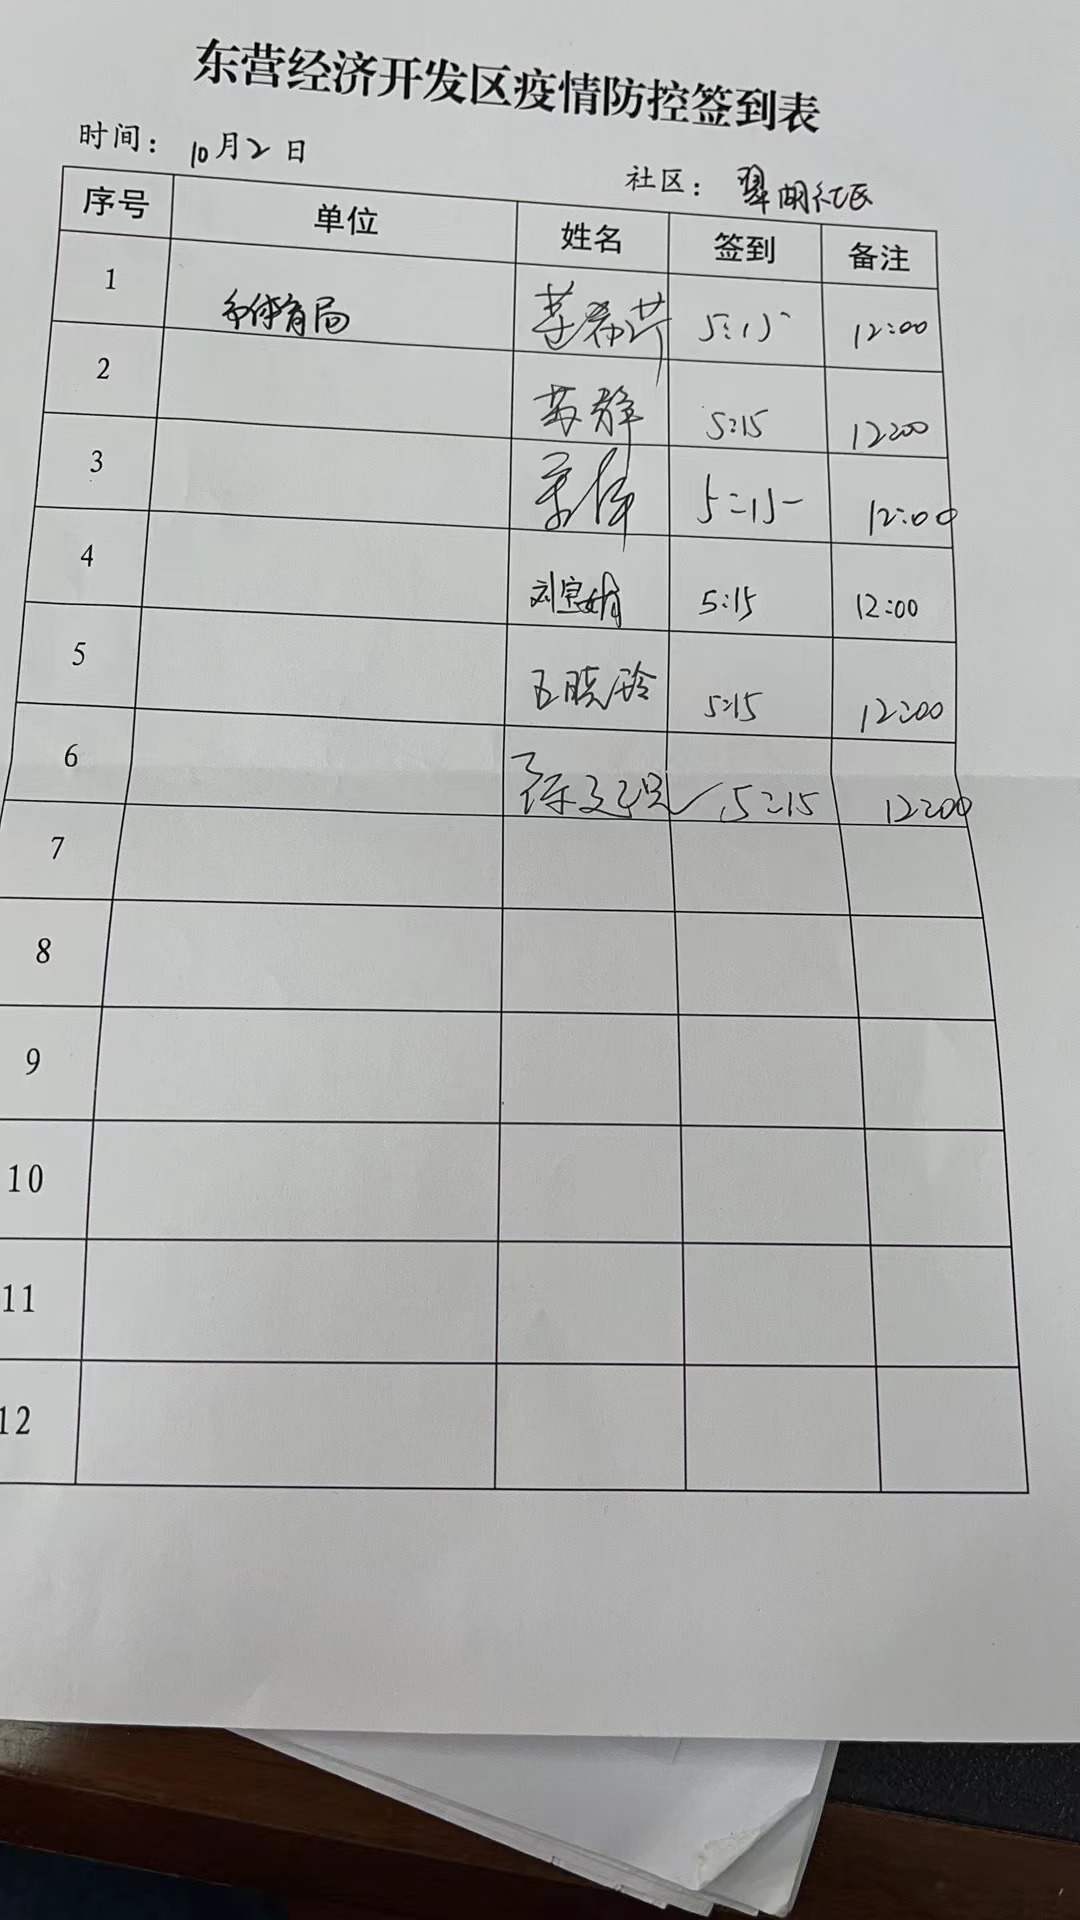 东营经济开发区疫情防控签到表
时间： 10月2日
社区： 翠湖社区
序号 单位 姓名 签到 备注
1 市体育局 5:15 12:00
2 苏静 5:15 12:00
3 5:15 12:00
4 刘宝娟 5:15 12:00
5 王晓玲 5:15 12:00
6 5:15 12:00
7
8
9
10
11
12